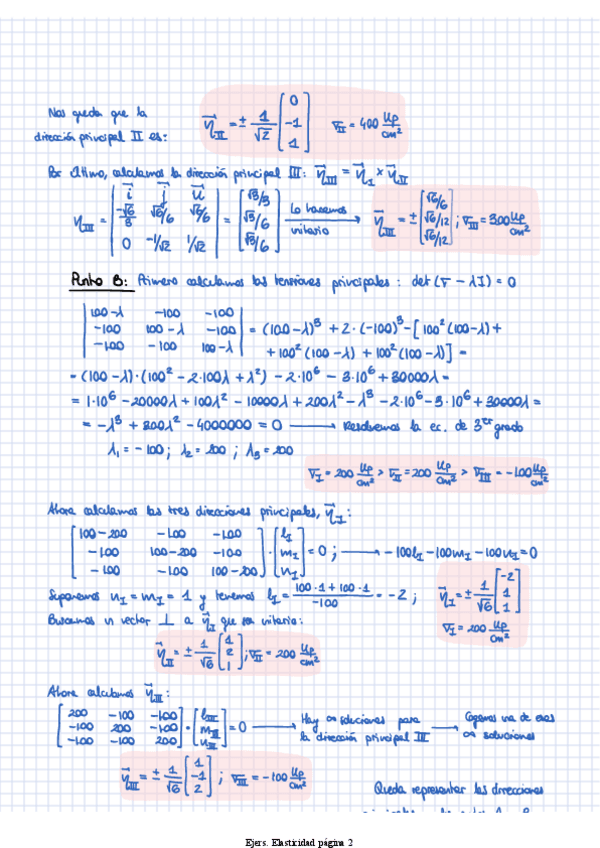 Nos queda que la
dirección principal II es: η⃗_II = ± 1/√2 [0 -1 1] ∇_II = 400 kp/cm²
Por último, calculamos la dirección principal III: η⃗_III = η⃗_I × η⃗_II
η_III = | i⃗ j⃗ k⃗ ; -√6/3 √6/6 √6/6 ; 0 -1/√2 1/√2 | = [√3/3 √3/6 √3/6] Lo hacemos unitario → η⃗_III = ± [√6/6 √6/12 √6/12] ; ∇_III = 300 kp/cm²
Punto B: Primero calculamos las tensiones principales : det (∇ - λI) = 0
| 100-λ -100 -100 |
| -100 100-λ -100 | = (100-λ)³ + 2·(-100)³ - [100²(100-λ) +
| -100 -100 100-λ | + 100²(100-λ) + 100²(100-λ)] =
= (100-λ)·(100² - 2·100λ + λ²) - 2·10⁶ - 3·10⁶ + 30000λ =
= 1·10⁶ - 20000λ + 100λ² - 10000λ + 200λ² - λ³ - 2·10⁶ - 3·10⁶ + 30000λ =
= -λ³ + 300λ² - 4000000 = 0 → Resolvemos la ec. de 3er grado
λ₁ = -100 ; λ₂ = 200 ; λ₃ = 200
∇_I = 200 kp/cm² > ∇_II = 200 kp/cm² > ∇_III = -100 kp/cm²
Ahora calculamos las tres direcciones principales, η⃗_I:
[ 100-200 -100 -100 ] [ l_I ]
[ -100 100-200 -100 ] · [ m_I ] = 0 ; → -100l_I - 100m_I - 100n_I = 0
[ -100 -100 100-200 ] [ n_I ]
Suponemos n_I = m_I = 1 y tenemos l_I = (100·1 + 100·1)/-100 = -2 ; η⃗_I = ± 1/√6 [-2 1 1]
Buscamos un vector ⊥ a η⃗_I que sea unitario: ∇_I = 200 kp/cm²
η⃗_II = ± 1/√6 [1 2 1] ; ∇_II = 200 kp/cm²
Ahora calculamos η⃗_III:
[ 200 -100 -100 ] [ l_III ]
[ -100 200 -100 ] · [ m_III ] = 0 → Hay ∞ soluciones para la dirección principal III → Cogemos una de esas ∞ soluciones
[ -100 -100 200 ] [ n_III ]
η⃗_III = ± 1/√6 [1 -1 2] ; ∇_III = -100 kp/cm²
Queda representar las direcciones
Ejers. Elasticidad página 2